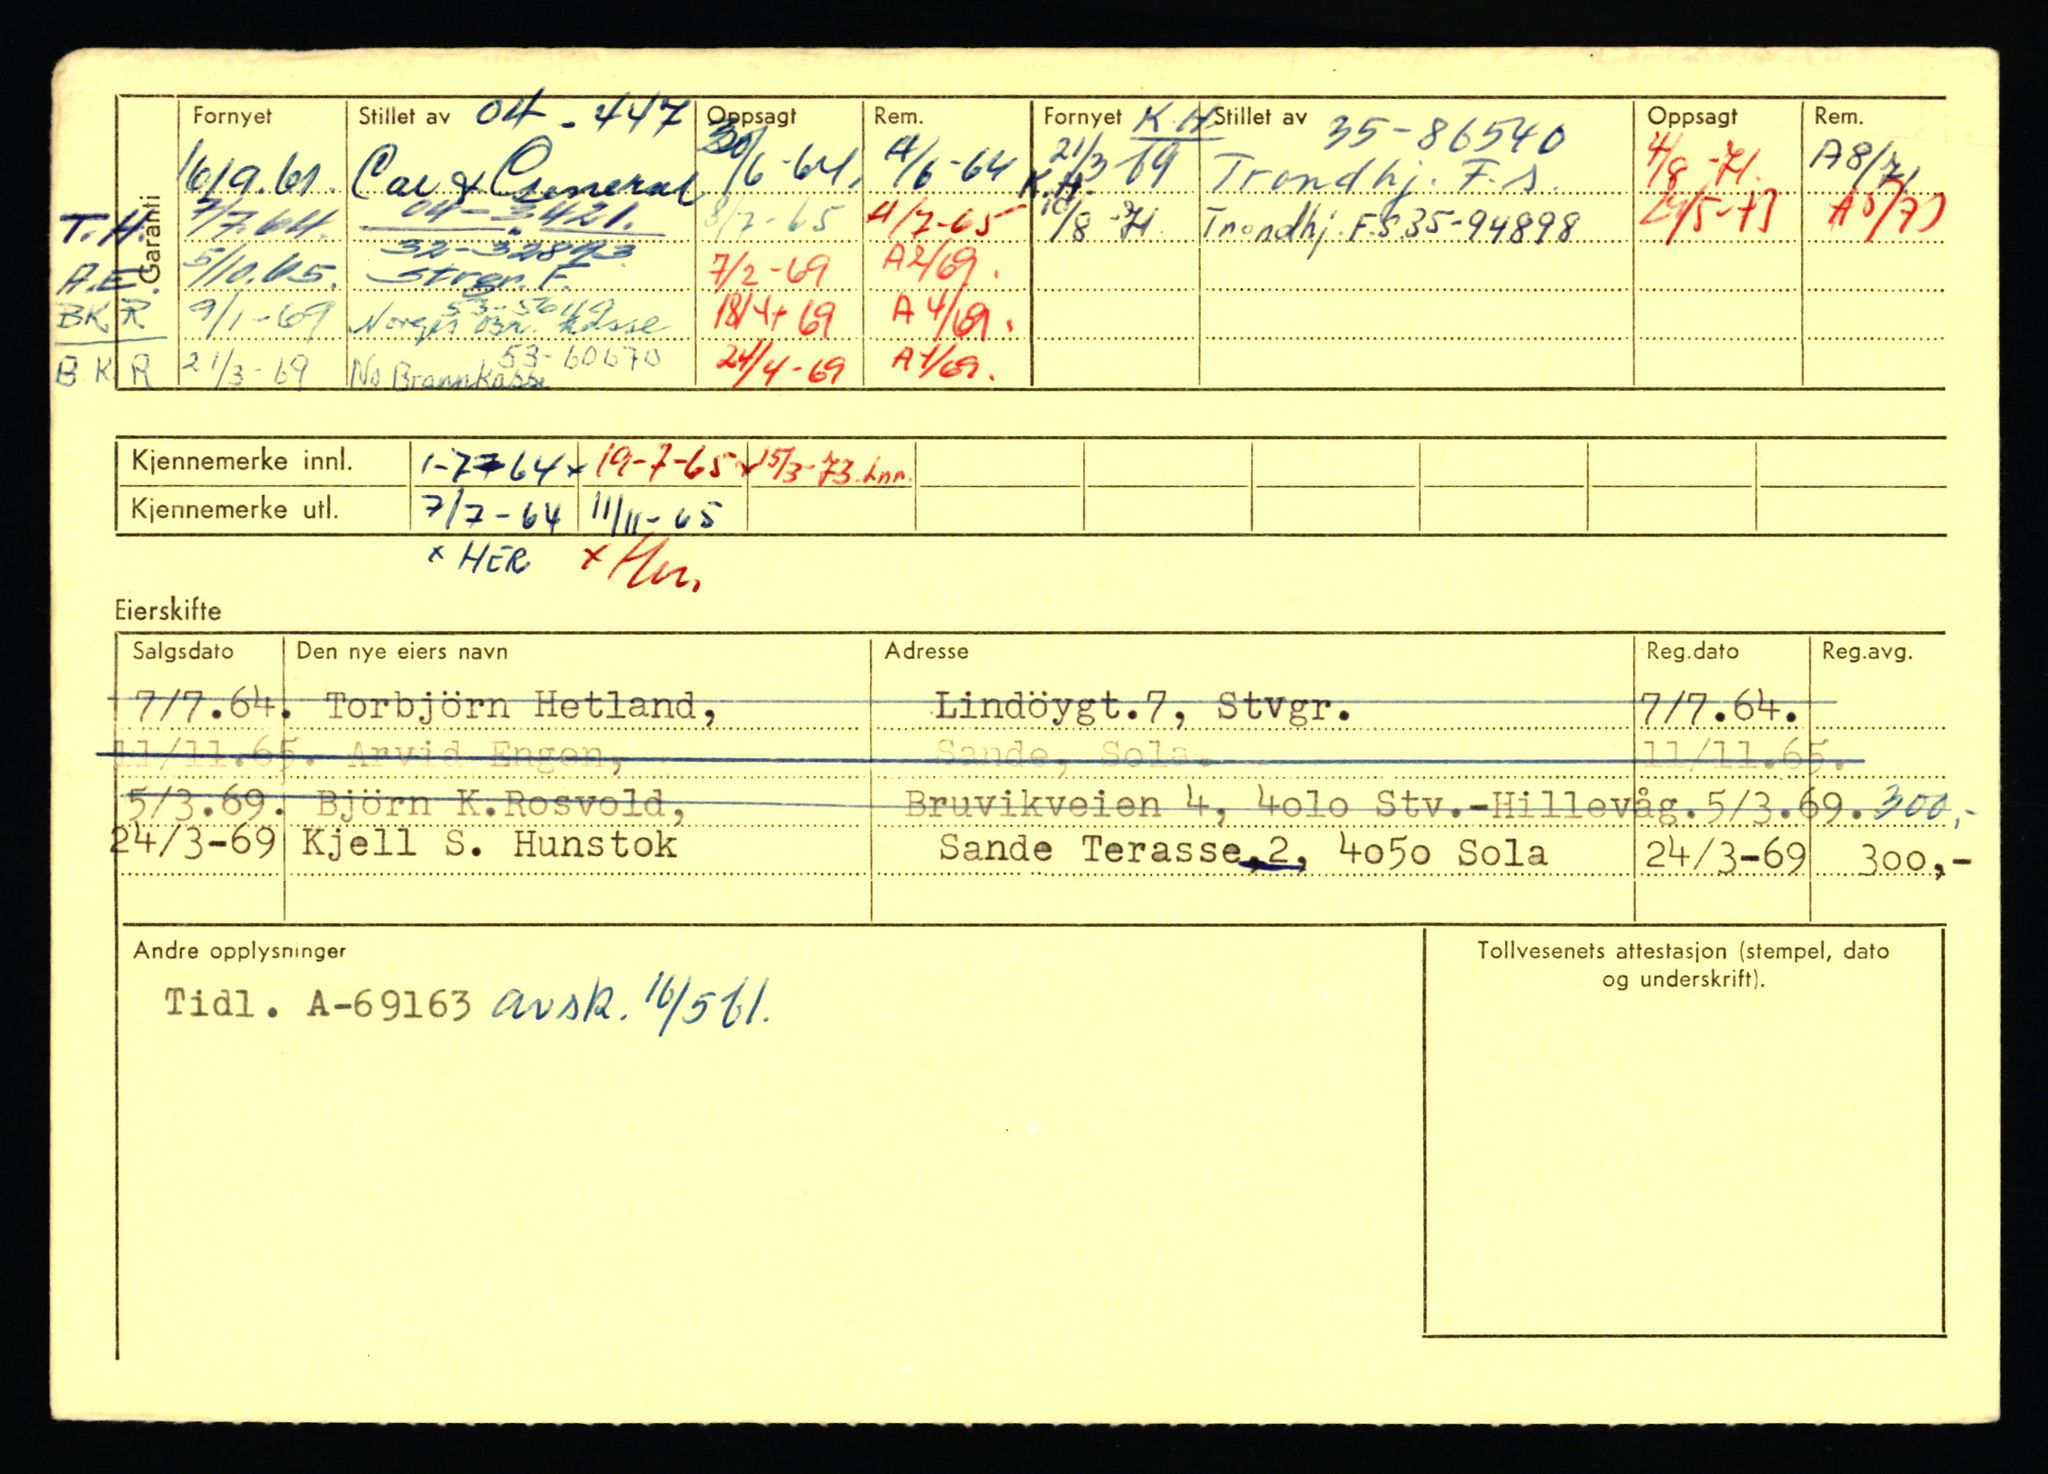 Garanti
Fornyet Stillet av 04-447 Oppsagt Rem. Fornyet K.H. Stillet av 35-86540 Oppsagt Rem.
16/9.61. Car & General 30/6-64. A/6-64 21/3-69 Trondhj. F.s. 4/8-71. A8/71
T.H. 7/7.64. 04-3421. 8/7-65 A/7-65 K.H. 10/8-71. Trondhj. F.S 35-94898 A5/73
A.E. 5/10.65. 32-32893 Stvgr. F. 7/2-69 A2/69.
BKR 9/1-69 53-56119 Norges Br. kasse 18/4-69 A4/69.
BKR 21/3-69 53-60670 No Brannkasse 24/4-69 A4/69.
Kjennemerke innl. 1-7-64 x 19-7-65 x 15/3-73 Lnn.
Kjennemerke utl. 7/7-64 11/11-65
x HER x Her.
Eierskifte
Salgsdato Den nye eiers navn Adresse Reg.dato Reg.avg.
7/7.64. Torbjörn Hetland, Lindöygt.7, Stvgr. 7/7.64.
11/11.65. Arvid Engen, Sande, Sola. 11/11.65.
5/3.69. Björn K.Rosvold, Bruvikveien 4, 4olo Stv.-Hillevåg. 5/3.69. 300,-
24/3-69 Kjell S. Hunstok Sande Terasse,2, 4o5o Sola 24/3-69 300,-
Andre opplysninger Tollvesenets attestasjon (stempel, dato
og underskrift).
Tidl. A-69163 avsk. 16/5 61.